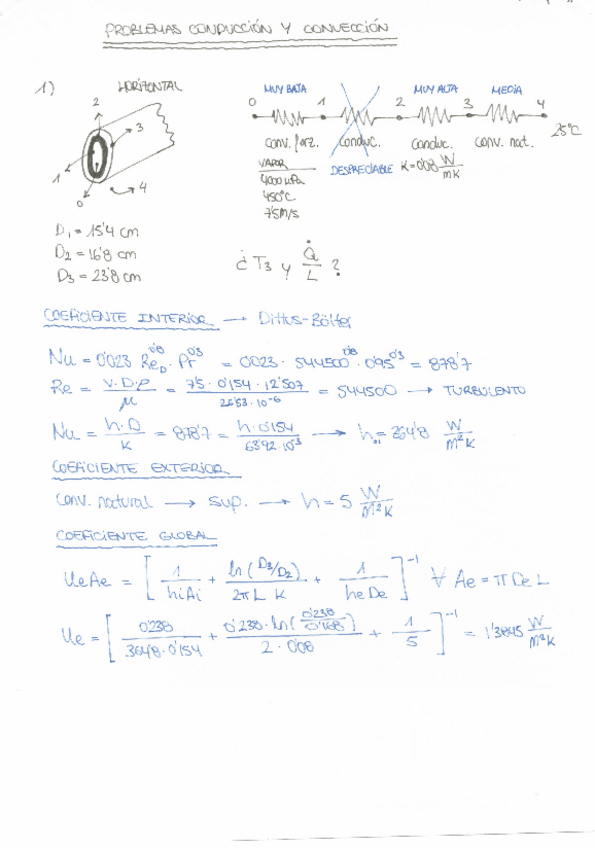 PROBLEMAS CONDUCCIÓN Y CONVECCIÓN
1) HORIZONTAL
MUY BAJA MUY ALTA MEDIA
0 1 2 3 4
25ºC
conv. forz. conduc. conduc. conv. nat.
VAPOR
4000 kPa
450ºC
7'5 m/s
DESPRECIABLE K=0'08 W/mK
2
3
1
0
4
D1 = 15'4 cm
D2 = 16'8 cm
D3 = 23'8 cm
¿ T3 y Q̇/L ?
COEFICIENTE INTERIOR → Dittus-Bölter
Nu = 0'023 Re_D^0'8 · Pr^0'3 = 0'023 · 544500^0'8 · 0'95^0'3 = 878'7
Re = V·D·ρ/μ = 7'5 · 0'154 · 12'507 / 26'53·10^-6 = 544500 → TURBULENTO
Nu = h·D/k = 878'7 = h·0'154 / 63'92·10^-3 → h_0,1 = 364'8 W/m²K
COEFICIENTE EXTERIOR
conv. natural → sup. → h = 5 W/m²K
COEFICIENTE GLOBAL
UeAe = [ 1/hiAi + ln(D3/D2)/2πLK + 1/heDe ]^-1 ∀ Ae = π De L
Ue = [ 0'238/364'8·0'154 + 0'238·ln(0'238/0'168)/2·0'08 + 1/5 ]^-1 = 1'3845 W/m²K